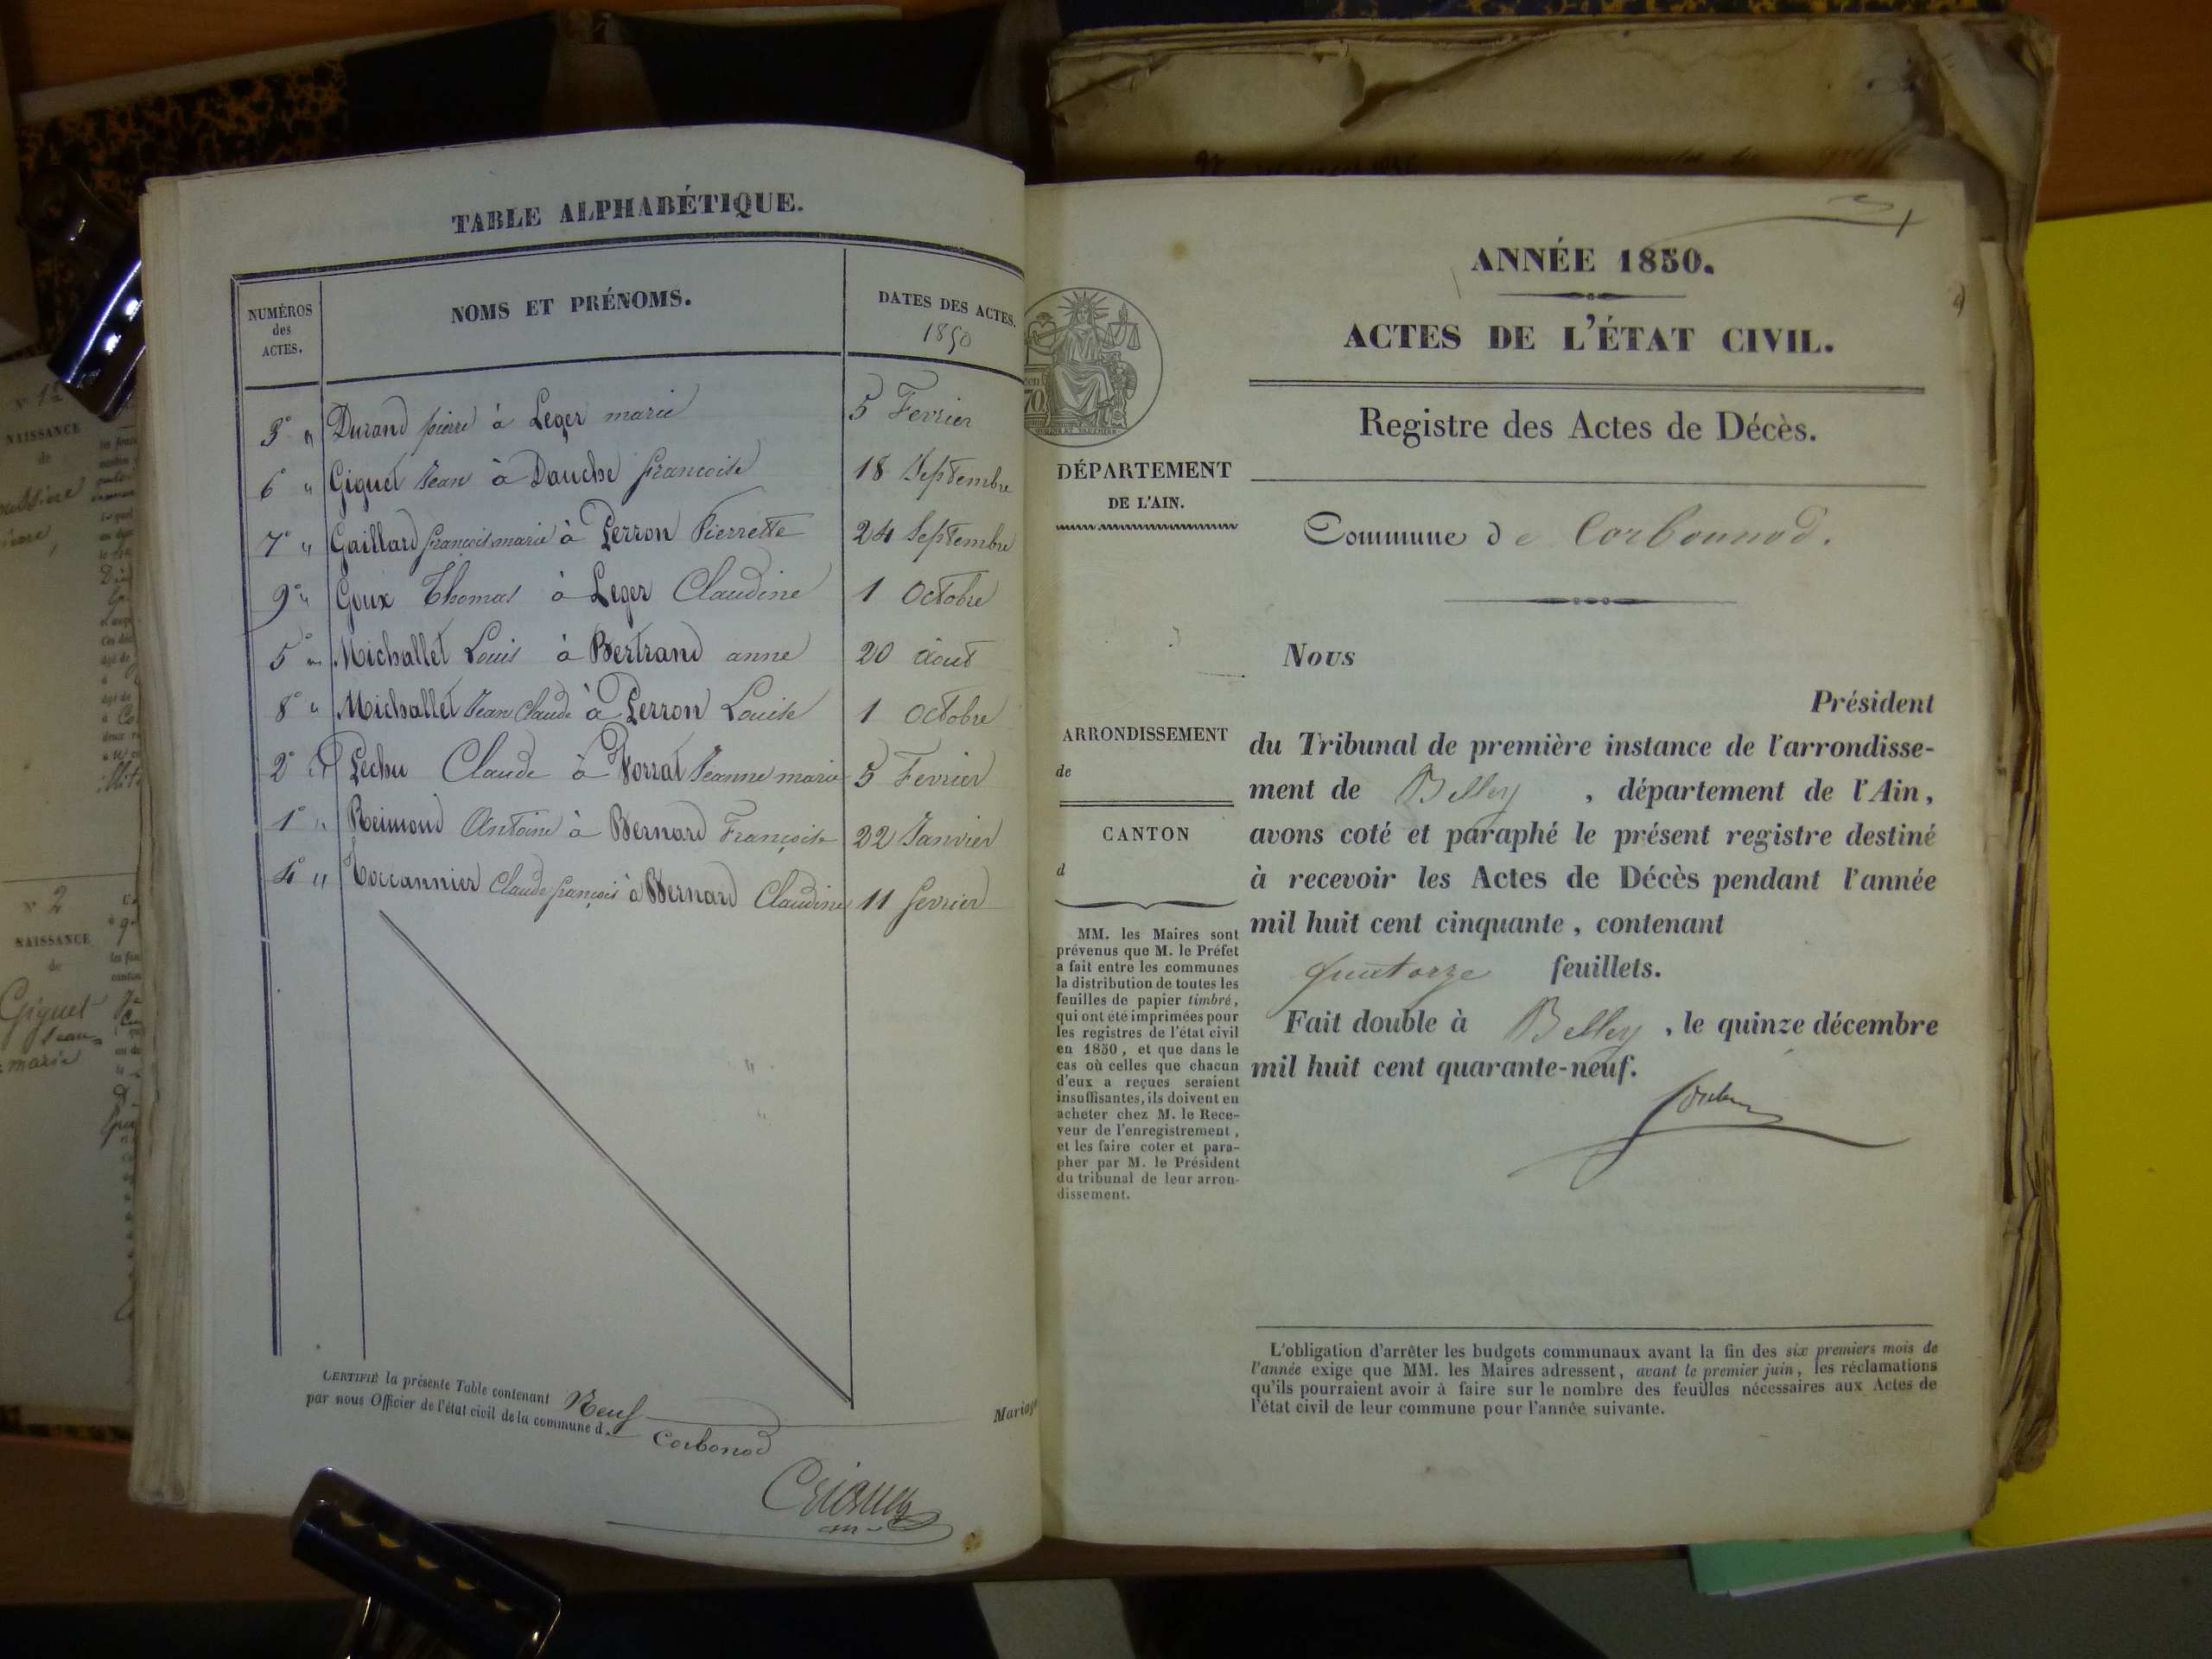 TABLE ALPHABÉTIQUE.
NUMÉROS
des
ACTES.
NOMS ET PRÉNOMS.
DATES DES ACTES.
1850
3° " Durand pierre à Leger marie 5 Fevrier
6 " Giguet Jean à Dauche francoise 18 Septembre
7° " Gaillard françois marie à Perron Pierrette 24 Septembre
9° " Goux Thomas à Leger Claudine 1 Octobre
5° " Michallet Louis à Bertrand anne 20 Aout
8° " Michallet Jean Claude à Perron Louise 1 Octobre
2° Pechu Claude à Jeanne marie 5 Fevrier
1° " Reimond Antoine à Bernard Françoise 22 Janvier
4° " Toccannier Claude françois à Bernard Claudine 11 fevrier
CERTIFIÉ la présente Table contenant Neuf Mariage
par nous Officier de l'état civil de la commune d. Corbonod
ANNÉE 1850.
ACTES DE L'ÉTAT CIVIL.
Registre des Actes de Décès.
DÉPARTEMENT
DE L'AIN.
Commune de Corbonnod.
Nous
Président
du Tribunal de première instance de l'arrondisse-
ment de Belley , département de l'Ain,
avons coté et paraphé le présent registre destiné
à recevoir les Actes de Décès pendant l'année
mil huit cent cinquante, contenant
quatorze feuillets.
Fait double à Belley , le quinze décembre
mil huit cent quarante-neuf.
ARRONDISSEMENT
de
CANTON
d
MM. les Maires sont
prévenus que M. le Préfet
a fait entre les communes
la distribution de toutes les
feuilles de papier timbré,
qui ont été imprimées pour
les registres de l'état civil
en 1850, et que dans le
cas où celles que chacun
d'eux a reçues seraient
insuffisantes, ils doivent en
acheter chez M. le Rece-
veur de l'enregistrement,
et les faire coter et para-
pher par M. le Président
du tribunal de leur arron-
dissement.
L'obligation d'arrêter les budgets communaux avant la fin des six premiers mois de
l'année exige que MM. les Maires adressent, avant le premier juin, les réclamations
qu'ils pourraient avoir à faire sur le nombre des feuilles nécessaires aux Actes de
l'état civil de leur commune pour l'année suivante.
N° 12
NAISSANCE
de
N° 2
NAISSANCE
de
Giguet
Jean
marie